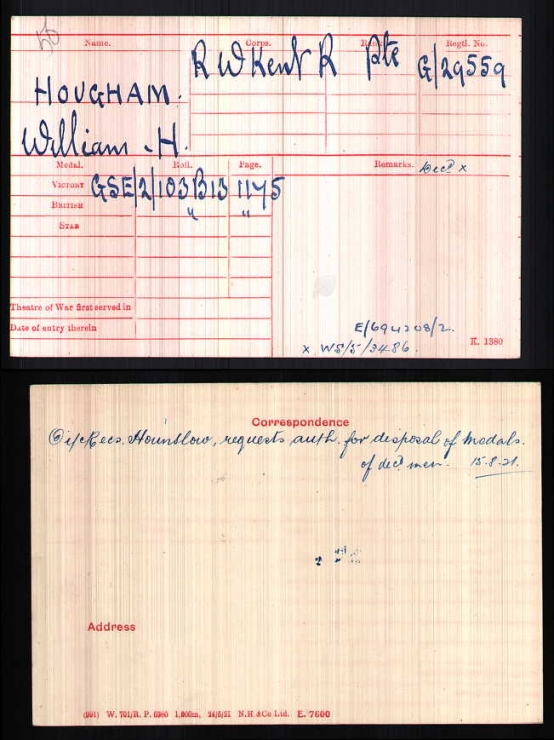 Name. Corps. Rank. Regtl. No.
HOUGHAM. R W Kent R Pte G/29559
William H.
Medal. Roll. Page. Remarks. Decd x
VICTORY GSE/2/103B13 1175
BRITISH " "
STAR
Theatre of War first served in
Date of entry therein
E/694208/2.
x WS/5/3486.
K. 1380
Correspondence
O i/c Recs. Hounslow, requests auth. for disposal of medals.
of decd men. 15.8.21.
Address
(991) W. 701/R. P. 6960 1,000m, 24/5/21 N.H & Co Ltd. E. 7600